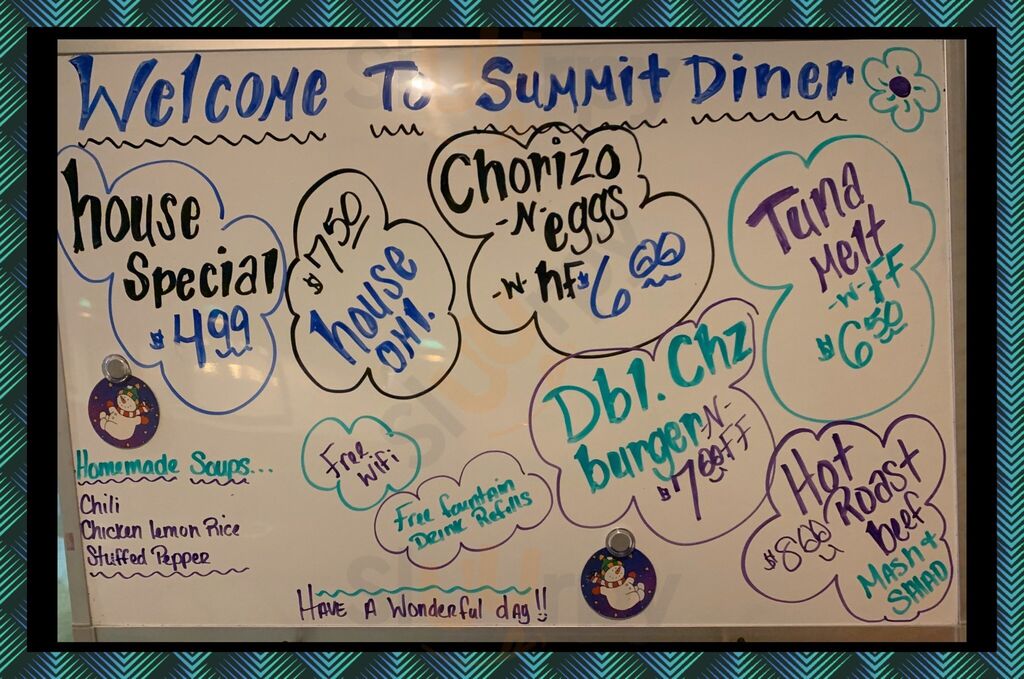 Welcome To Summit Diner
house
Special
$4.99
$7.50
house
OMl.
Chorizo
-N-
eggs
-w- hf $6.00
Tuna
Melt
-w- FF
$6.50
Dbl. Chz
burger -N-
$7.00 FF
Hot
Roast
beef
$8.00
Mash +
Salad
Homemade Soups...
Chili
Chicken lemon Rice
Stuffed Pepper
Free
Wifi
Free fountain
Drink Refills
Have A Wonderful day!!